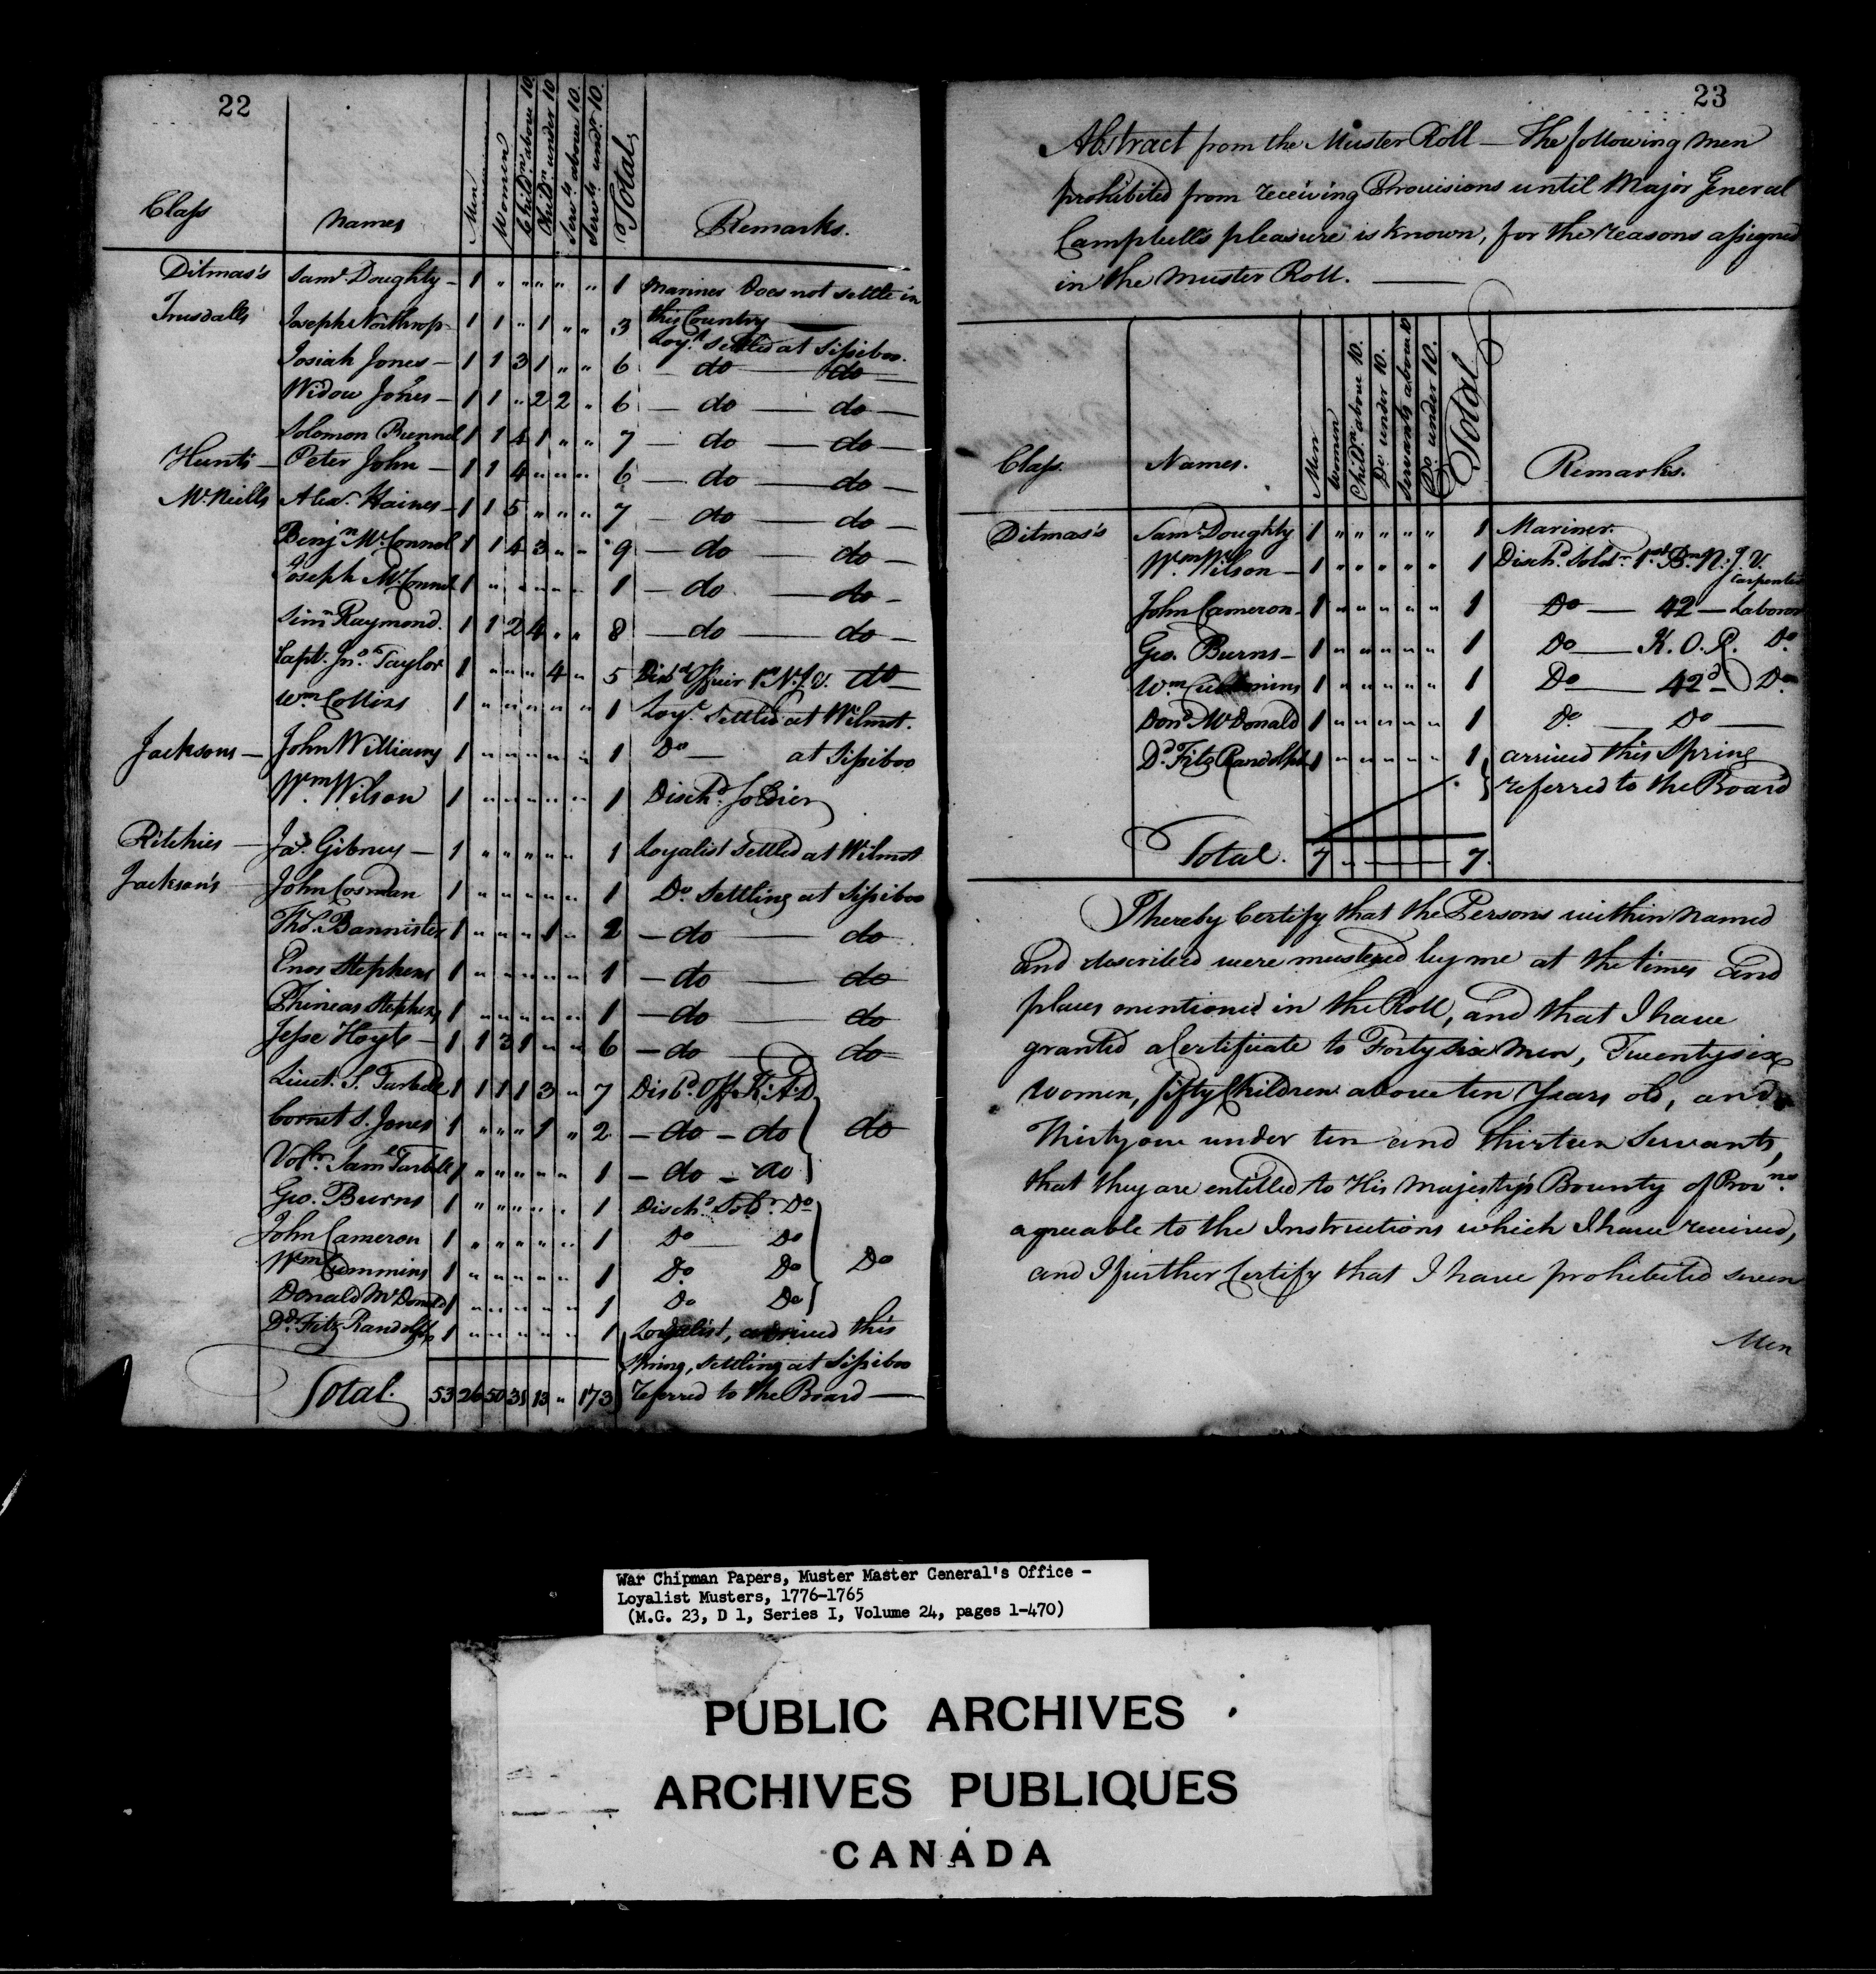 22
Class Names Men Women Child.n above 10. Child.n under 10 Serv.ts above 10. Serv.ts und.r 10. Total Remarks.
Ditmas's Sam.l Doughty — 1 " " " " " 1 Mariner Does not settle in
this Country —
Trusdalls Joseph Northrop — 1 1 " 1 " " 3 Loy.st settled at Sissiboo.
Josiah Jones — 1 1 3 1 " " 6 — do — do —
Widow Jones — 1 1 " 2 2 " 6 — do — do —
Solomon Bunnel 1 1 4 1 " " 7 — do — do —
Hunts — Peter John — 1 1 4 " " " 6 — do — do —
McNiells Alex.r Haines — 1 1 5 " " " 7 — do — do —
Benj.n McConnol 1 1 4 3 " " 9 — do — do —
Joseph McConnol 1 " " " " " 1 — do — do —
Sim.n Raymond. 1 1 2 4 " " 8 — do — do —
Capt. Jn.o Taylor 1 " " " 4 " 5 Disb.d Officer 1st N.J.V. do —
Wm Collins 1 " " " " " 1 Loy.t settled at Wilmot.
Jacksons — John Williams 1 " " " " " 1 Do — at Sissiboo
Wm. Wilson 1 " " " " " 1 Disch.d Soldier
Ritchies — Ja.s Gibney — 1 " " " " " 1 Loyalist settled at Wilmot
Jackson's John Cosman 1 " " " " " 1 Do. Settling at Sissiboo
Tho.s Bannister 1 " " " 1 " 2 — do — do
Enos Stephens 1 " " " " " 1 — do — do
Phineas Stephens 1 " " " " " 1 — do — do
Jesse Hoyts — 1 1 3 1 " " 6 — do — do
Lieut. S. Tarbell 1 1 1 1 3 " 7 Disb.d Off.r K.A.D
Cornet S. Jones 1 " " " 1 " 2. — do — do do
Vol.r Sam.l Tarbell 1 " " " " " 1 — do — do
Geo. Burns 1 " " " " " 1 Disch.d Sold.r Do
John Cameron 1 " " " " " 1 Do Do
Wm Cummins 1 " " " " " 1 Do. Do Do
Donald McDonald 1 " " " " " 1 Do Do
D.d Fitz Randolph 1 " " " " " 1 Loyalist, arrived this
Spring, settling at Sissiboo
Total. 53 26 50 31 13 " 173 referred to the Board —
23
Abstract from the Muster Roll — The following Men
prohibited from receiving Provisions until Major General
Campbell's pleasure is known, for the reasons assigned
in the Muster Roll. —
Class. Names. Men Women Child.n above 10. Do. under 10. Servants above 10 Do. under 10. Total Remarks.
Ditmas's Sam.l Doughty 1 " " " " " 1 Mariner.
Wm. Wilson — 1 " " " " " 1 Disch.d Sold.r 1st Bn N.J.V.
Carpenter
John Cameron — 1 " " " " " 1 Do — 42 — Laborer
Geo. Burns — 1 " " " " " 1 Do — K.O.R. Do.
Wm Cummins 1 " " " " " 1 Do — 42d — Do.
Don.d McDonald 1 " " " " " 1 Do. — Do —
D.d Fitz Randolph 1 " " " " " 1 arrived this Spring
referred to the Board
Total. 7 " — 7.
I hereby Certify that the Persons within named
and described were mustered by me at the times and
places mentioned in the Roll, and that I have
granted a Certificate to Forty six Men, Twenty six
Women, fifty Children above ten Years old, and
Thirty one under ten and thirteen Servants,
that they are entitled to His Majesty's Bounty of Prov.ns
agreeable to the Instructions which I have received,
and I further Certify that I have prohibited seven
Men
War Chipman Papers, Muster Master General's Office -
Loyalist Musters, 1776-1765
(M.G. 23, D 1, Series I, Volume 24, pages 1-470)
PUBLIC ARCHIVES
ARCHIVES PUBLIQUES
CANADA